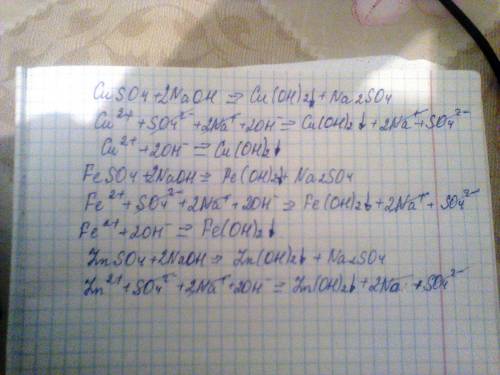 CuSO4+2NaOH = Cu(OH)2↓+Na2SO4
Cu²⁺+SO4²⁻+2Na⁺+2OH⁻=Cu(OH)2↓+2Na⁺+SO4²⁻
Cu²⁺+2OH⁻=Cu(OH)2↓
FeSO4+2NaOH=Fe(OH)2↓+Na2SO4
Fe²⁺+SO4²⁻+2Na⁺+2OH⁻=Fe(OH)2↓+2Na⁺+SO4²⁻
Fe²⁺+2OH⁻=Fe(OH)2↓
ZnSO4+2NaOH=Zn(OH)2↓+Na2SO4
Zn²⁺+SO4²⁻+2Na⁺+2OH⁻=Zn(OH)2↓+2Na⁺+SO4²⁻